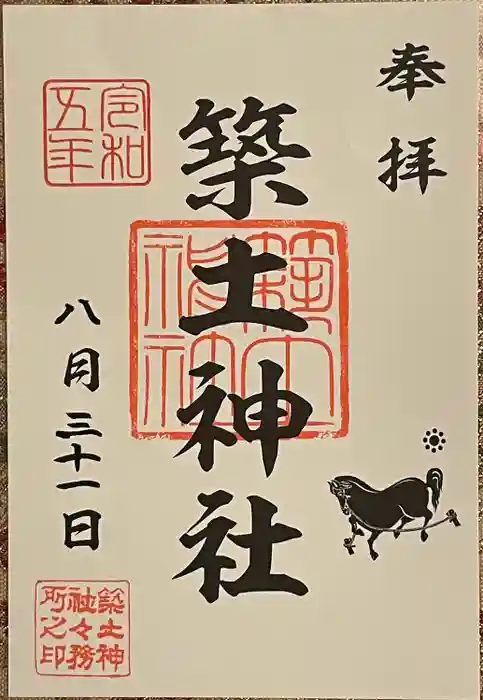 奉拝
築土神社
築土神社
令和五年
八月三十一日
築土神社々務所之印